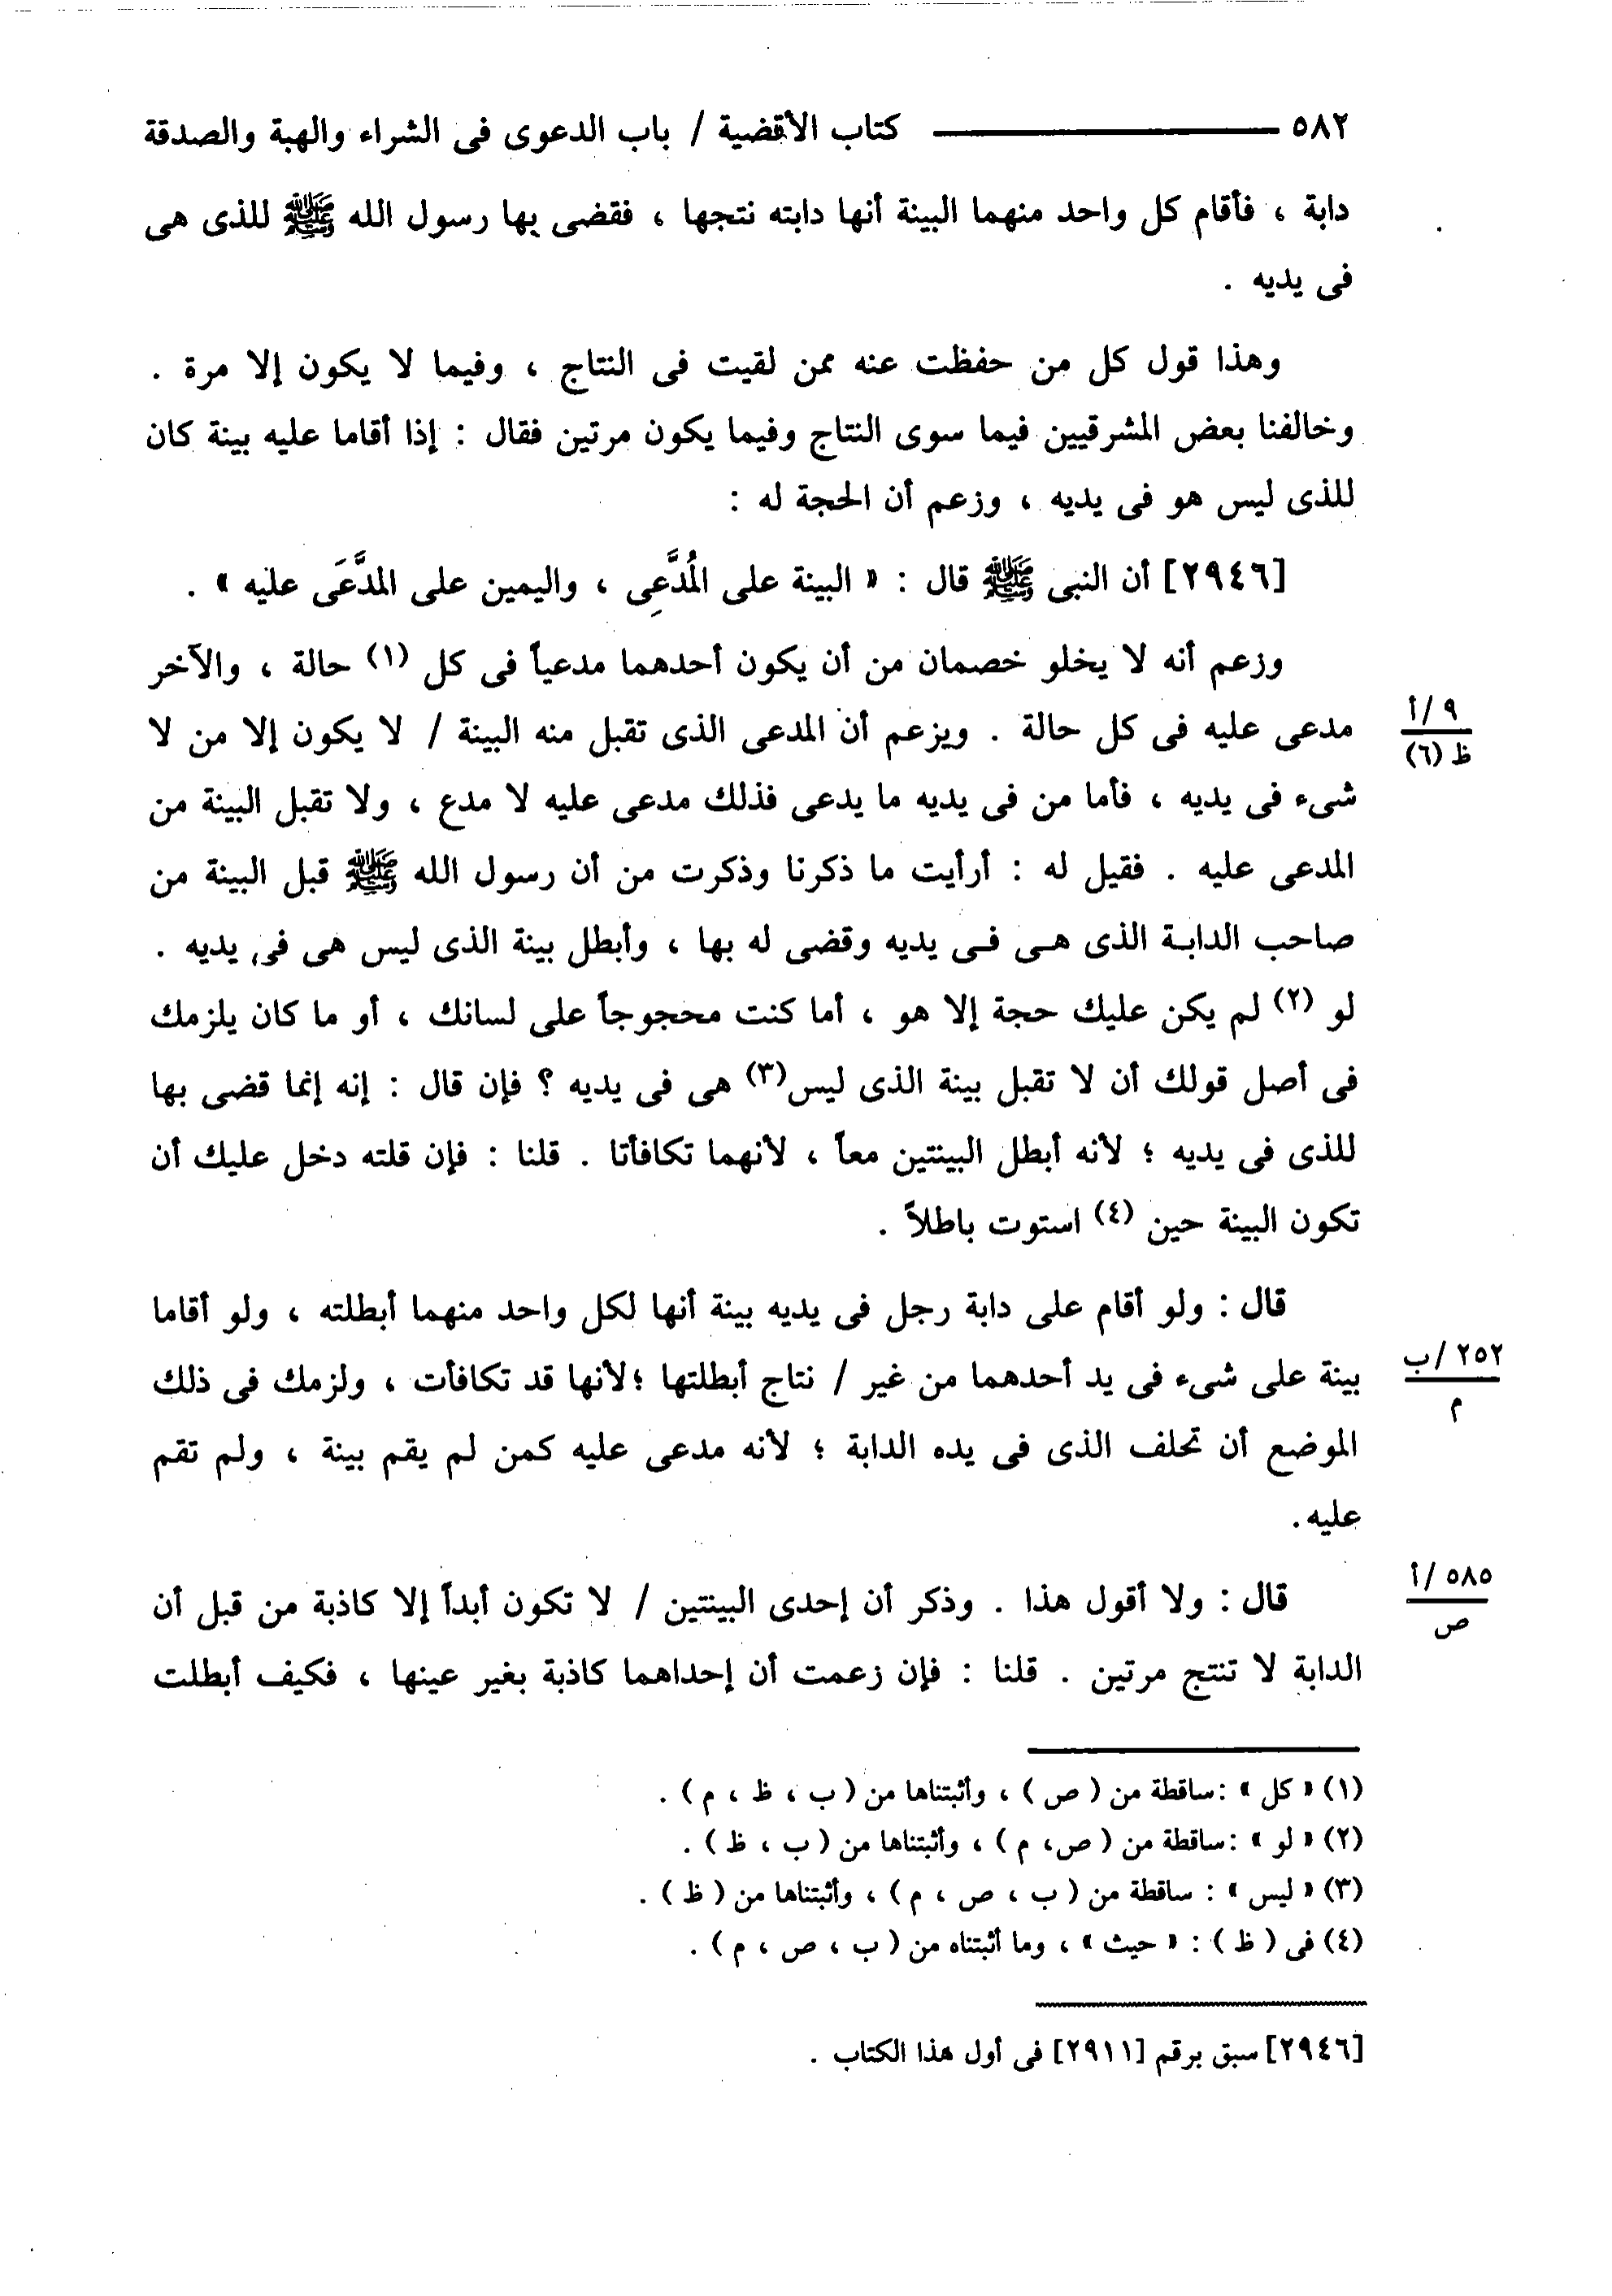 ٥٨٢ ــــــــــــــــــ كتاب الأقضية / باب الدعوى فى الشراء والهبة والصدقة
دابة ، فأقام كل واحد منهما البينة أنها دابته نتجها ، فقضى بها رسول الله ﷺ للذى هى
فى يديه .
وهذا قول كل من حفظت عنه ممن لقيت فى النتاج ، وفيما لا يكون إلا مرة .
وخالفنا بعض المشرقيين فيما سوى النتاج وفيما يكون مرتين فقال : إذا أقاما عليه بينة كان
للذى ليس هو فى يديه ، وزعم أن الحجة له :
[٢٩٤٦] أن النبى ﷺ قال : « البينة على المُدَّعِى ، واليمين على المدَّعَى عليه » .
وزعم أنه لا يخلو خصمان من أن يكون أحدهما مدعياً فى كل (١) حالة ، والآخر
مدعى عليه فى كل حالة . ويزعم أن المدعى الذى تقبل منه البينة / لا يكون إلا من لا
٩/أ
ظ (٦)
شىء فى يديه ، فأما من فى يديه ما يدعى فذلك مدعى عليه لا مدع ، ولا تقبل البينة من
المدعى عليه . فقيل له : أرأيت ما ذكرنا وذكرت من أن رسول الله ﷺ قبل البينة من
صاحب الدابة الذى هى فى يديه وقضى له بها ، وأبطل بينة الذى ليس هى فى يديه .
لو (٢) لم يكن عليك حجة إلا هو ، أما كنت محجوجاً على لسانك ، أو ما كان يلزمك
فى أصل قولك أن لا تقبل بينة الذى ليس(٣) هى فى يديه ؟ فإن قال : إنه إنما قضى بها
للذى فى يديه ؛ لأنه أبطل البينتين معاً ، لأنهما تكافأتا . قلنا : فإن قلته دخل عليك أن
تكون البينة حين (٤) استوت باطلاً .
قال : ولو أقام على دابة رجل فى يديه بينة أنها لكل واحد منهما أبطلته ، ولو أقاما
بينة على شىء فى يد أحدهما من غير / نتاج أبطلتها ؛لأنها قد تكافأت ، ولزمك فى ذلك
٢٥٢/ب
م
الموضع أن تحلف الذى فى يده الدابة ؛ لأنه مدعى عليه كمن لم يقم بينة ، ولم تقم
عليه.
قال : ولا أقول هذا . وذكر أن إحدى البينتين / لا تكون أبداً إلا كاذبة من قبل أن
٥٨٥/أ
ص
الدابة لا تنتج مرتين . قلنا : فإن زعمت أن إحداهما كاذبة بغير عينها ، فكيف أبطلت
(١) « كل » :ساقطة من ( ص ) ، وأثبتناها من ( ب ، ظ ، م ) .
(٢) « لو » :ساقطة من ( ص، م ) ، وأثبتناها من ( ب ، ظ ) .
(٣) « ليس » : ساقطة من ( ب ، ص ، م ) ، وأثبتناها من ( ظ ) .
(٤) فى ( ظ ) : « حيث » ، وما أثبتناه من ( ب ، ص ، م ) .
[٢٩٤٦] سبق برقم [٢٩١١] فى أول هذا الكتاب .